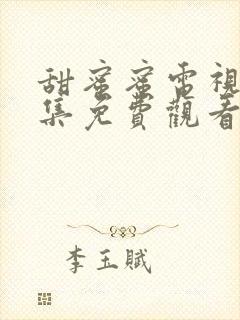 甜蜜蜜電視
集免費觀看
李玉賦